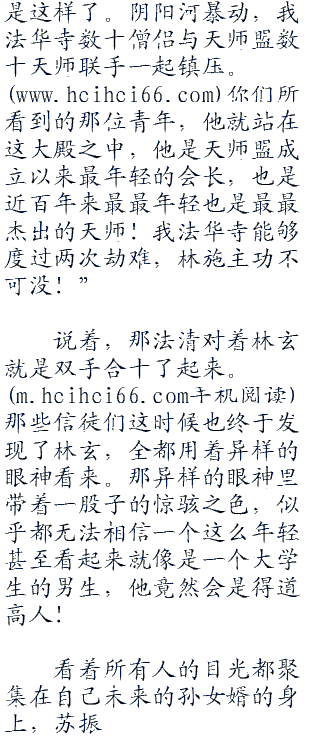 是这样了。阴阳河暴动，我
法华寺数十僧侣与天师盟数
十天师联手一起镇压。
(www.hcihci66.com)你们所
看到的那位青年，他就站在
这大殿之中，他是天师盟成
立以来最年轻的会长，也是
近百年来最最年轻也是最最
杰出的天师！我法华寺能够
度过两次劫难，林施主功不
可没！”
说着，那法清对着林玄
就是双手合十了起来。
(m.hcihci66.com手机阅读)
那些信徒们这时候也终于发
现了林玄，全都用着异样的
眼神看来。那异样的眼神里
带着一股子的惊骇之色，似
乎都无法相信一个这么年轻
甚至看起来就像是一个大学
生的男生，他竟然会是得道
高人！
看着所有人的目光都聚
集在自己未来的孙女婿的身
上，苏振